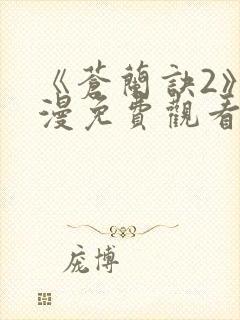 《蒼蘭訣2》
漫免費觀看
庞博